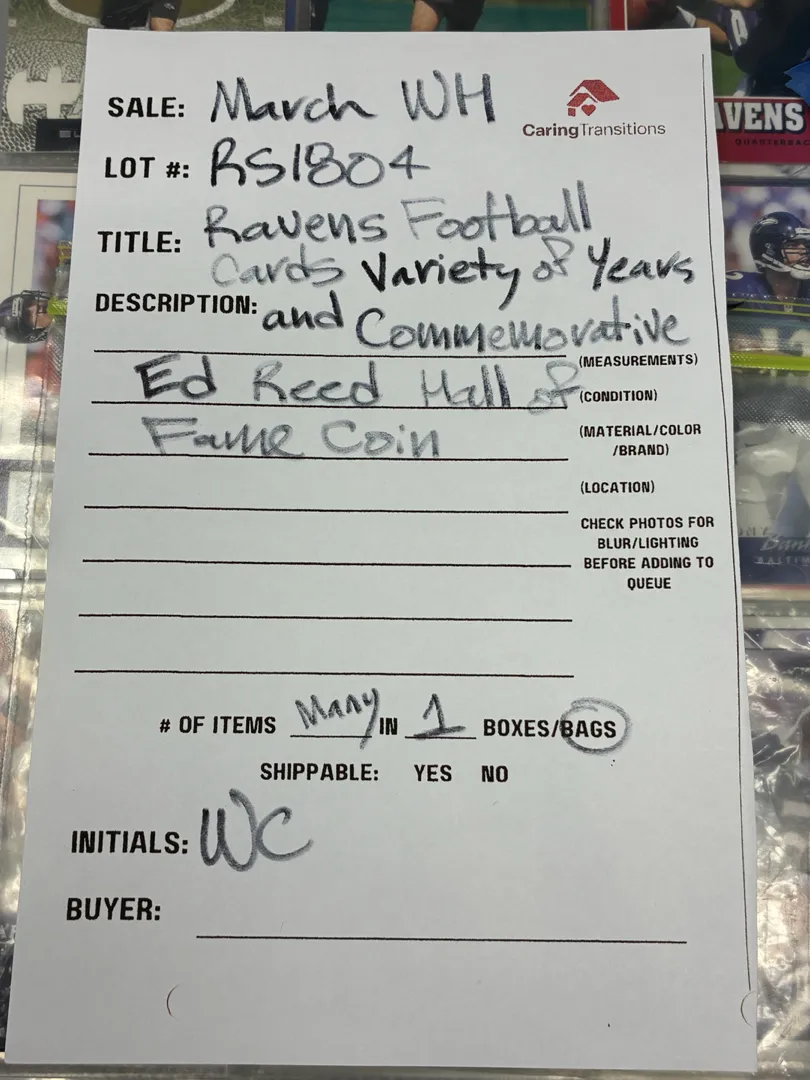 SALE: March WH
CaringTransitions
LOT #: RS1804
TITLE: Ravens Football
Cards Variety of Years
DESCRIPTION: and Commemorative
(MEASUREMENTS)
Ed Reed Hall of
(CONDITION)
Fame Coin
(MATERIAL/COLOR
/BRAND)
(LOCATION)
CHECK PHOTOS FOR
BLUR/LIGHTING
BEFORE ADDING TO
QUEUE
# OF ITEMS Many IN 1 BOXES/BAGS
SHIPPABLE: YES NO
INITIALS: WC
BUYER:
AVENS
QUARTERBAC